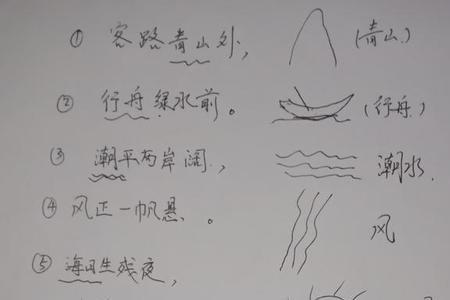 ① 客路青山外， (青山)
② 行舟绿水前。 (行舟)
③ 潮平两岸阔， 潮水.
④ 风正一帆悬。 风
⑤ 海日生残夜，